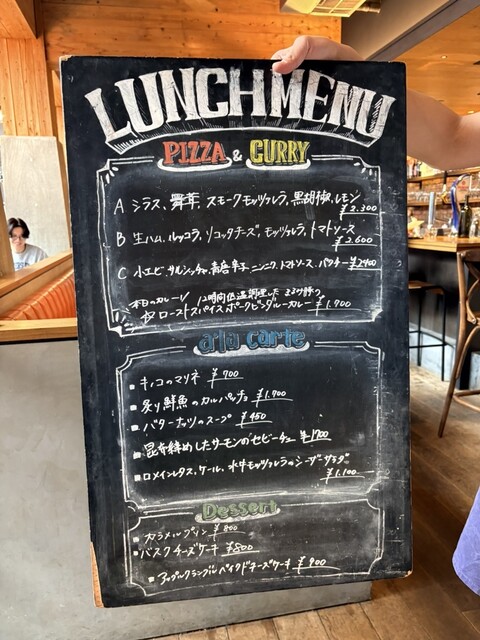 LUNCH MENU
PIZZA & CURRY
A シラス、舞茸、スモークモッツァレラ、黒胡椒、レモン
¥2.300
B 生ハム、ルッコラ、リコッタチーズ、モッツァレラ、トマトソース
¥2.600
C 小エビ、サルシッチャ、青唐辛子、ニンニク、トマトソース、パクチー ¥2400
本日のカレー 12時間低温調理した
ローストスパイスポークビンダルーカレー ¥1.700
a la carte
■ キノコのマリネ ¥700
■ 炙り鮮魚のカルパッチョ ¥1.700
■ バターナッツのスープ ¥450
■ 昆布締めしたサーモンのセビーチェ ¥1700
■ ロメインレタス、ケール、水牛モッツァレラのシーザーサラダ
¥1.100
Dessert
■ カラメルプリン ¥800
■ バスクチーズケーキ ¥800
■ アップルクランブルベイクドチーズケーキ ¥900